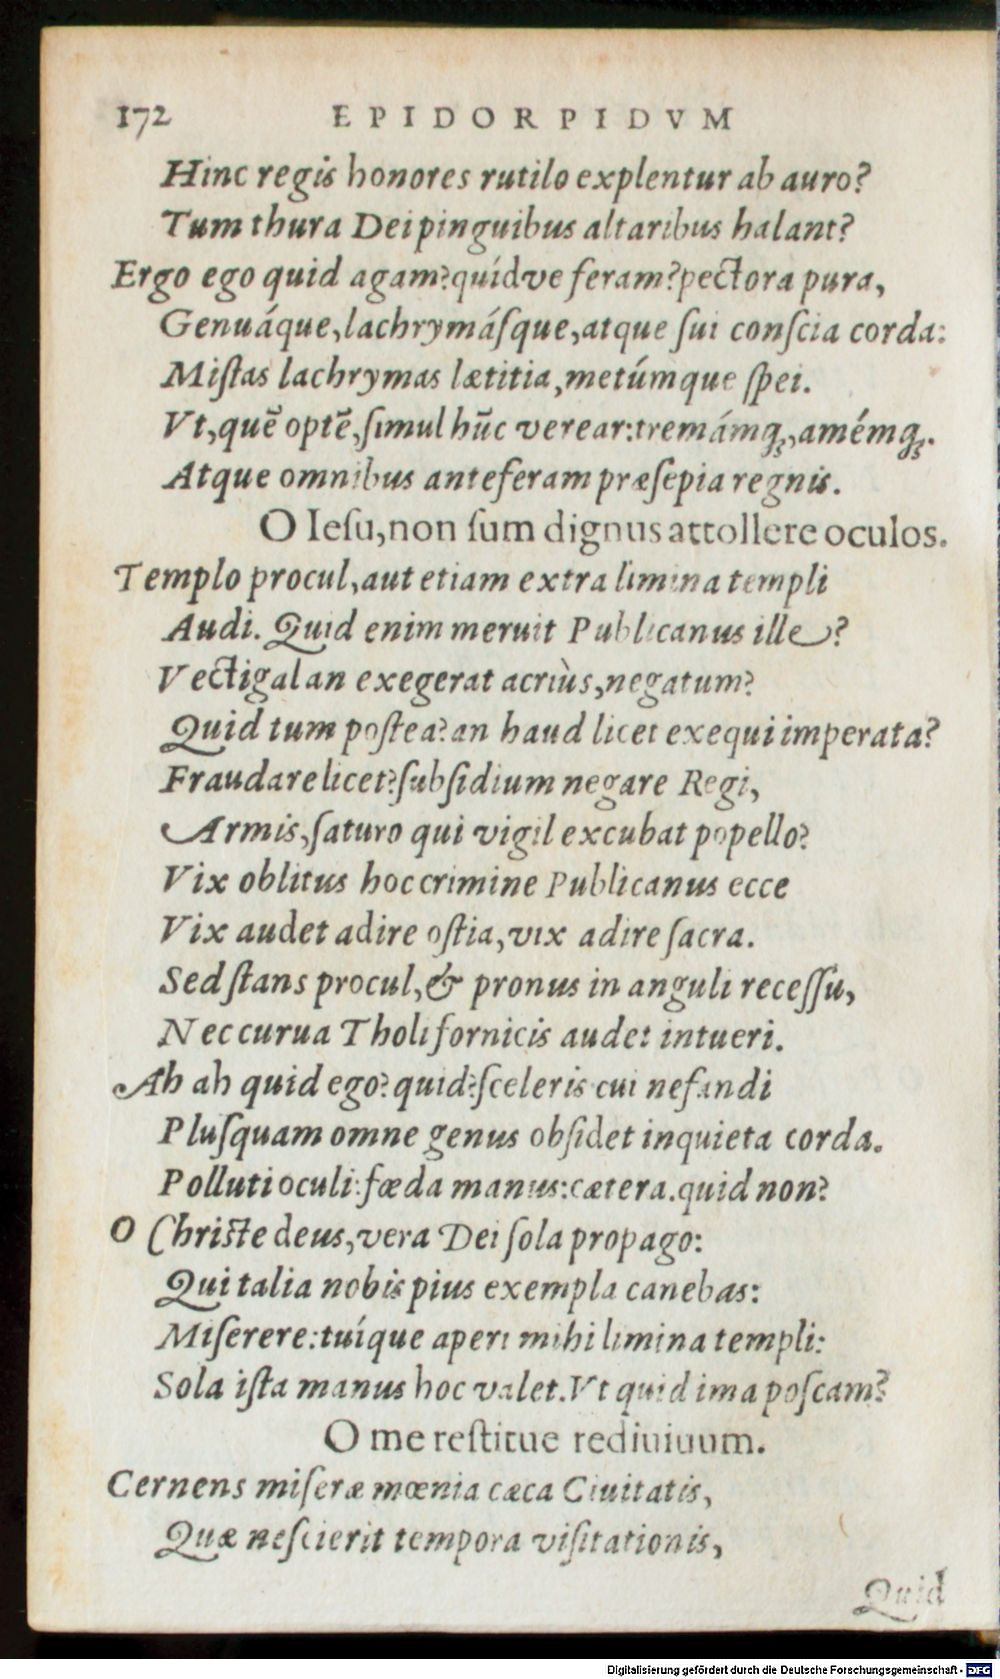 172 EPIDORPIDVM
Hinc regis honores rutilo explentur ab auro?
Tum thura Dei pinguibus altaribus halant?
Ergo ego quid agam? quídve feram? pectora pura,
Genuáque, lachrymáſque, atque ſui conſcia corda:
Miſtas lachrymas lætitia, metúmque ſpei.
Vt, quē optē, ſimul hūc verear: tremámq;, amémq;.
Atque omnibus anteferam præſepia regnis.
O Ieſu, non ſum dignus attollere oculos.
Templo procul, aut etiam extra limina templi
Audi. Quid enim meruit Publicanus ille?
Vectigal an exegerat acriùs, negatum?
Quid tum poſtea? an haud licet exequi imperata?
Fraudare licet? ſubſidium negare Regi,
Armis, ſaturo qui vigil excubat popello?
Vix oblitus hoc crimine Publicanus ecce
Vix audet adire oſtia, vix adire ſacra.
Sed ſtans procul, & pronus in anguli receſſu,
Nec curua Tholi fornicis audet intueri.
Ah ah quid ego? quid? ſceleris cui nefandi
Pluſquam omne genus obſidet inquieta corda.
Polluti oculi: fœda manus: cætera. quid non?
O Chriſte deus, vera Dei ſola propago:
Qui talia nobis pius exempla canebas:
Miſerere: tuíque aperi mihi limina templi:
Sola iſta manus hoc valet. Vt quid ima poſcam?
O me reſtitue rediuiuum.
Cernens miſeræ mœnia cæca Ciuitatis,
Quæ neſcierit tempora viſitationis,
Quid
Digitalisierung gefördert durch die Deutsche Forschungsgemeinschaft - DFG